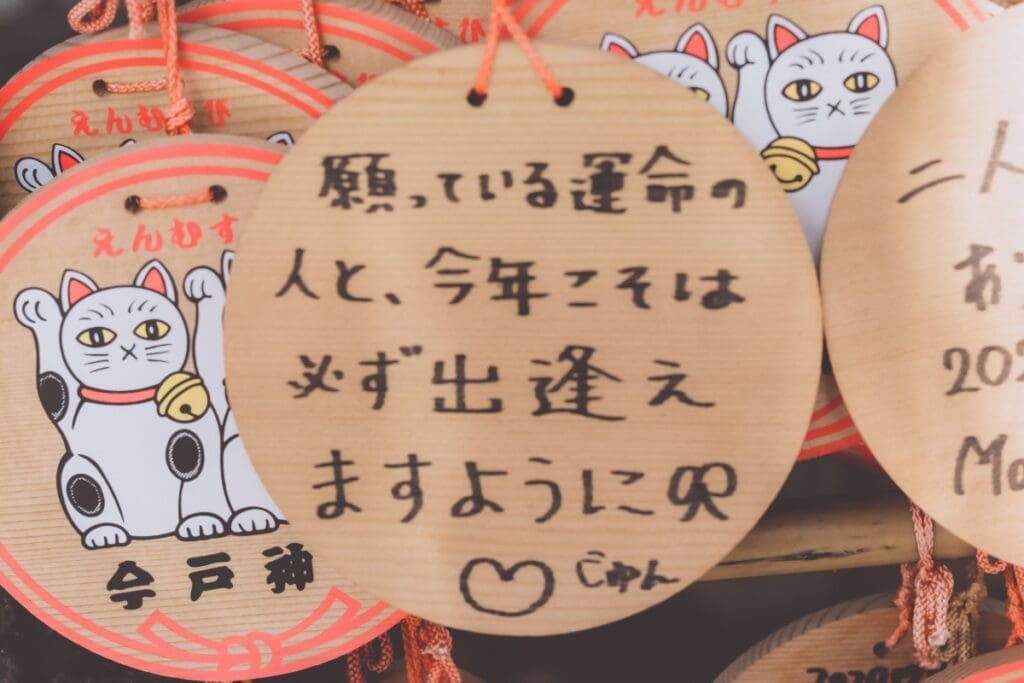 えんむすび
えんむす
今戸神
願っている運命の
人と、今年こそは
必ず出逢え
ますように
じゅん
二人
あ
202
Ma
2020